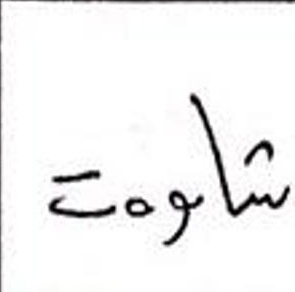 شاومت